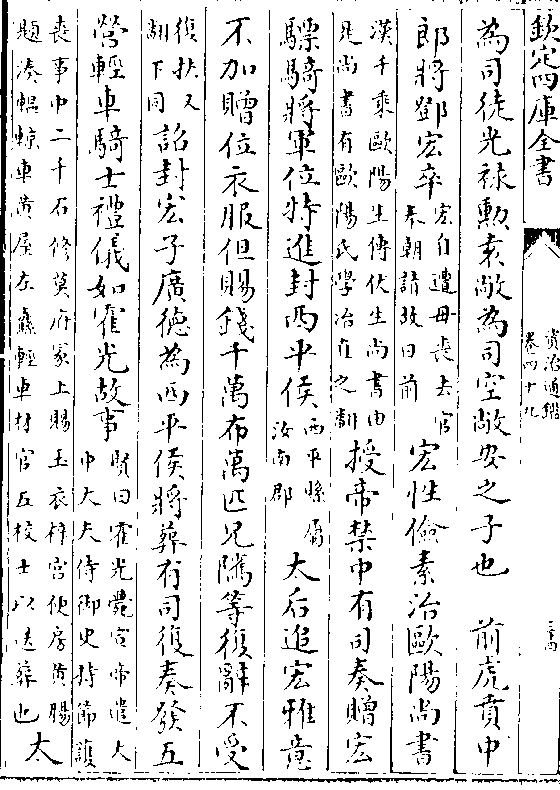 欽定四庫全書
資治通鑑
卷四十九
為司徒光祿勳袁敞為司空敞安之子也　前虎賁中
郎將鄧宏卒宏自遭母喪去官奉朝請故曰前宏性儉素治歐陽尚書
漢千乘歐陽生傳伏生尚書由是尚書有歐陽氏學治直之翻授帝禁中有司奏贈宏
驃騎將軍位特進封西平侯西平縣屬汝南郡太后追宏雅意
不加贈位衣服但賜錢千萬布萬匹兄隲等復辭不受
復扶又翻下同詔封宏子廣德為西平侯將葬有司復奏發五
營輕車騎士禮儀如霍光故事賢曰霍光薨宣帝遣大中大夫侍御史持節護
喪事中二千石修莫府冢上賜玉衣梓宮便房黄腸題湊轀輬車黄屋左纛輕車材官五校士以送葬也太